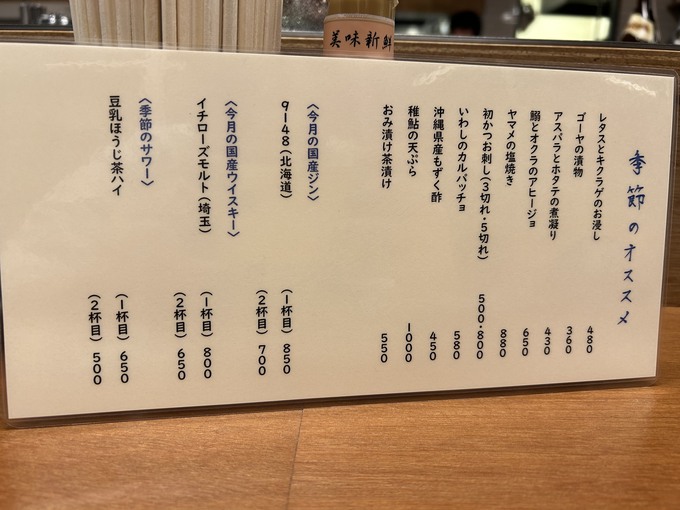 美味新鮮
季節のオススメ
レタスとキクラゲのお浸し 480
ゴーヤの漬物 360
アスパラとホタテの煮凝り 430
鰯とオクラのアヒージョ 650
ヤマメの塩焼き 880
初かつお刺し(3切れ・5切れ) 500・800
いわしのカルパッチョ 580
沖縄県産もずく酢 450
稚鮎の天ぷら 1000
おみ漬け茶漬け 550
〈今月の国産ジン〉
9-148(北海道) (1杯目) 850
(2杯目) 700
〈今月の国産ウイスキー〉
イチローズモルト(埼玉) (1杯目) 800
(2杯目) 650
〈季節のサワー〉
豆乳ほうじ茶ハイ (1杯目) 650
(2杯目) 500